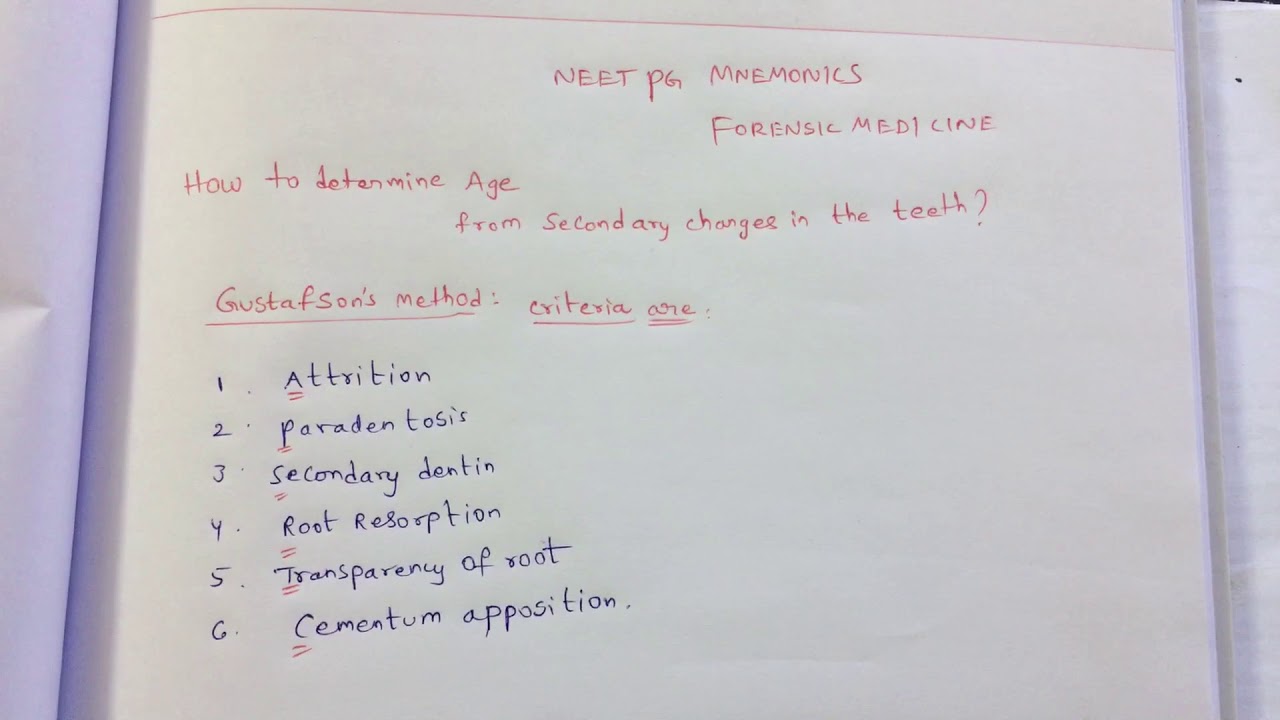 NEET PG MNEMONICS
FORENSIC MEDICINE
How to determine Age
from Secondary changes in the teeth?
Gustafson's method: criteria are:
1. Attrition
2. paradentosis
3. Secondary dentin
4. Root Resorption
5. Transparency of root
6. Cementum apposition.